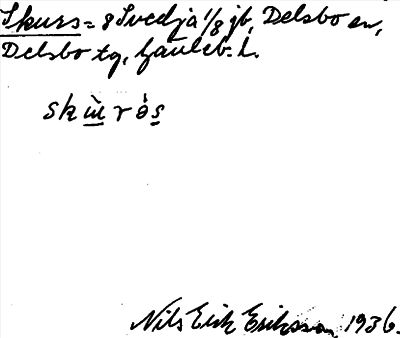 Skurs = 8 Svedja 1/8 jb, Delsbo sn,
Delsbo tg, Gävleb. L.
skùrə̀s
Nils Erik Eriksson 1936.